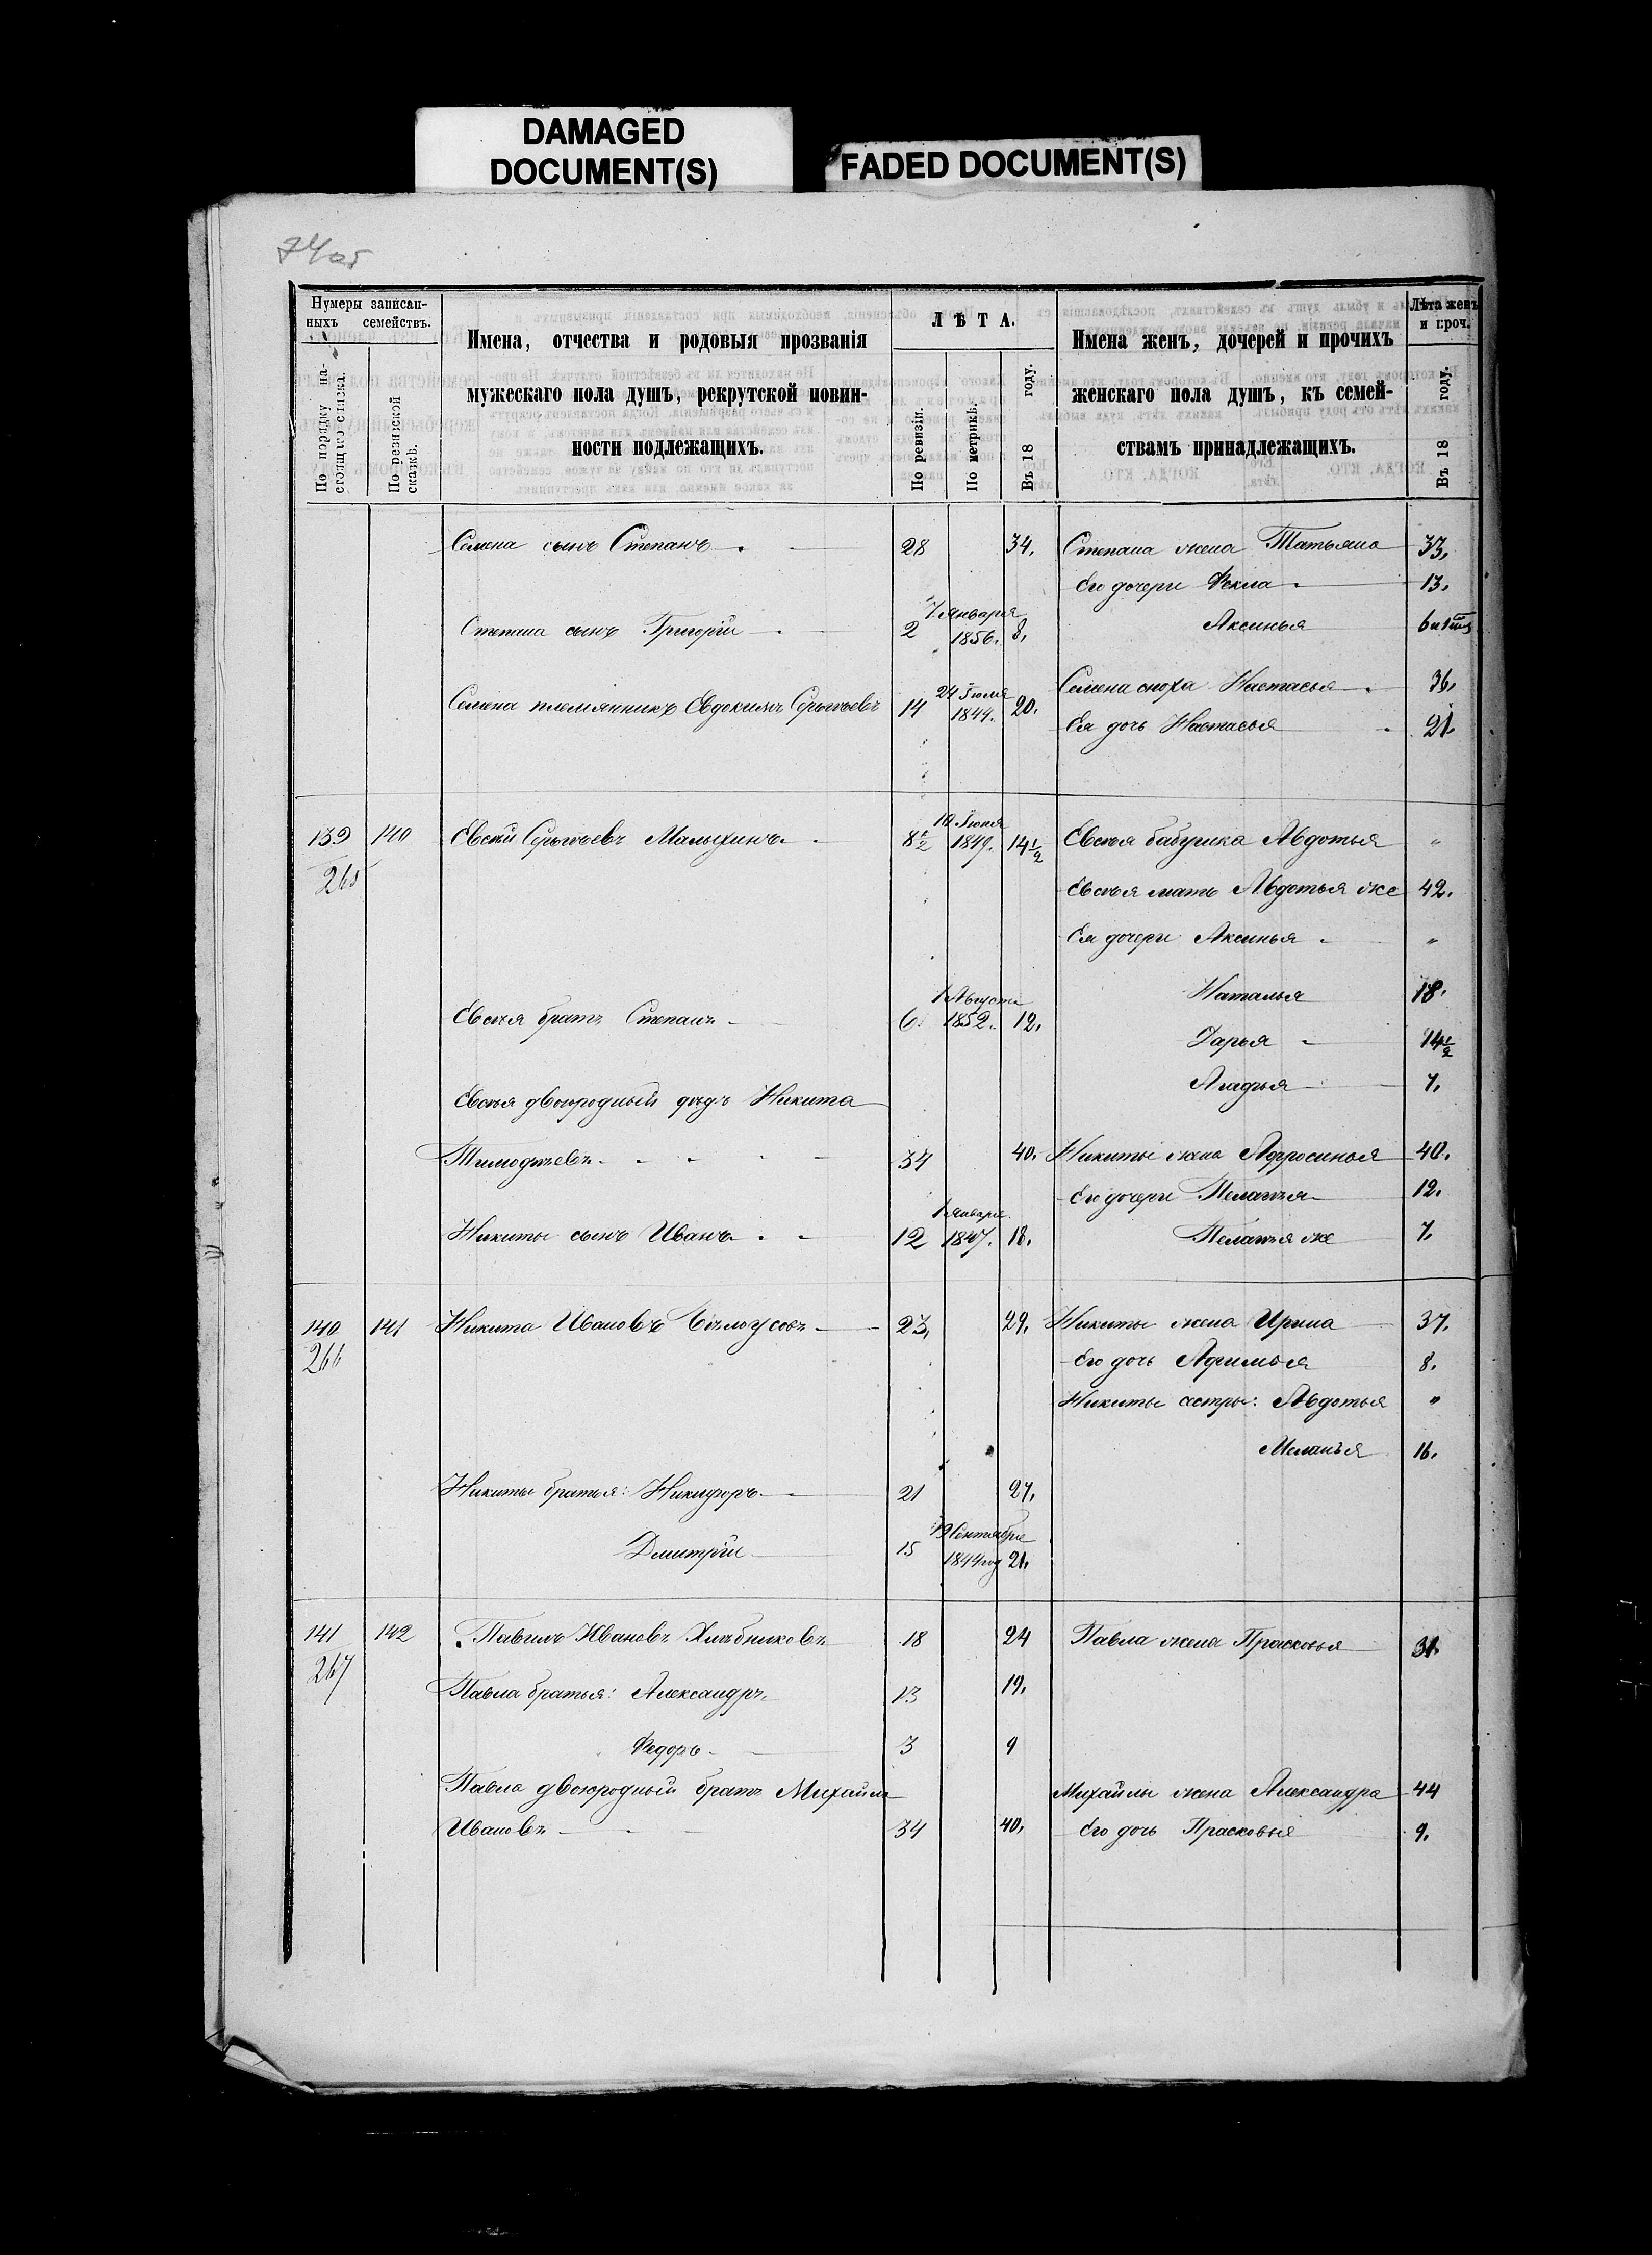 DAMAGED
DOCUMENT(S)
FADED DOCUMENT(S)
74об
Нумеры записан-
ныхъ семействъ.
По порядку на-
стоящаго списка.
По ревизской
сказкѣ.
Имена, отчества и родовыя прозванія
мужескаго пола душъ, рекрутской повин-
ности подлежащихъ.
ЛѢТА.
По ревизіи.
По метрикѣ.
Въ 18 году.
Имена женъ, дочерей и прочихъ
женскаго пола душъ, къ семей-
ствамъ принадлежащихъ.
Лѣта женъ
и проч.
Въ 18 году.
Семена сынъ Степанъ 28 34. Степана жена Татьяна 33.
Его дочери Фекла 13.
Степана сынъ Григорій 2 7 Января 1856. 8. Аксинья
Семена сноха Настасья 36.
Семена племянникъ Евдокимъ Сергѣевъ 14 24 Іюля 1844. 20.
Ея дочь Настасья 21.
139 140 Евсѣй Сергѣевъ Малыхинъ 8½ 10 Іюня 1849. 14½ Евсѣя бабушка Авдотья "
265
Евсѣя мать Авдотья же 42.
Ея дочери Аксинья "
Наталья 18.
Евсѣя братъ Степанъ 6 1 Августа 1852. 12.
Дарья 14½
Агафья 7.
Евсѣя двоюродный дѣдъ Никита
Тимофѣевъ 34 40. Никиты жена Афросинья 40.
Его дочери Пелагѣя 12.
Никиты сынъ Иванъ 12 1 Января 1847. 18. Пелагѣя же 7.
140 141 Никита Ивановъ Бѣлоусовъ 23. 29. Никиты жена Ирина 37.
266
Его дочь Афимья 8.
Никиты сестры: Авдотья "
Меланья 16.
Никиты братья: Никифоръ 21 27.
Дмитрій 15 Сентября 1844 год 21.
141 142 Павелъ Ивановъ Хлѣбниковъ 18 24 Павла жена Прасковья 31.
267
Павла братья: Александръ 13 19.
Федоръ 3 9
Павла двоюродный братъ Михайла
Михайлы жена Александра 44
Ивановъ 34 40. Его дочь Прасковья 9.